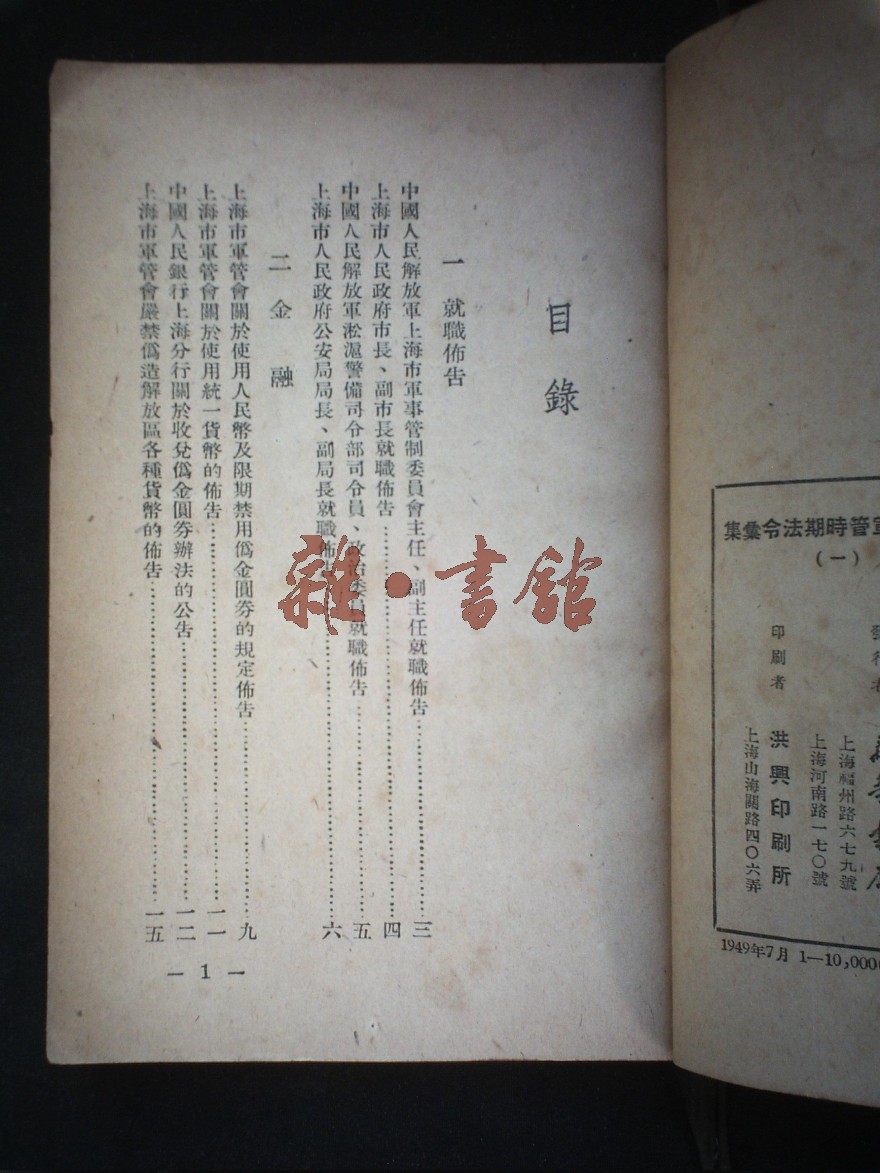 目錄
一 就職佈告
中國人民解放軍上海市軍事管制委員會主任、副主任就職佈告……三
上海市人民政府市長、副市長就職佈告……四
中國人民解放軍淞滬警備司令部司令員、政治委員就職佈告……五
上海市人民政府公安局局長、副局長就職佈告……六
二 金融
上海市軍管會關於使用人民幣及限期禁用僞金圓券的規定佈告……九
上海市軍管會關於使用統一貨幣的佈告……一一
中國人民銀行上海分行關於收兌僞金圓券辦法的公告……一二
上海市軍管會嚴禁僞造解放區各種貨幣的佈告……一五
— 1 —
雜·書舘
管時期法令彙集
(一)
上海福州路六七九號
上海河南路一七〇號
印刷者 洪興印刷所
上海山海關路四〇六弄
1949年7月 1—10,000